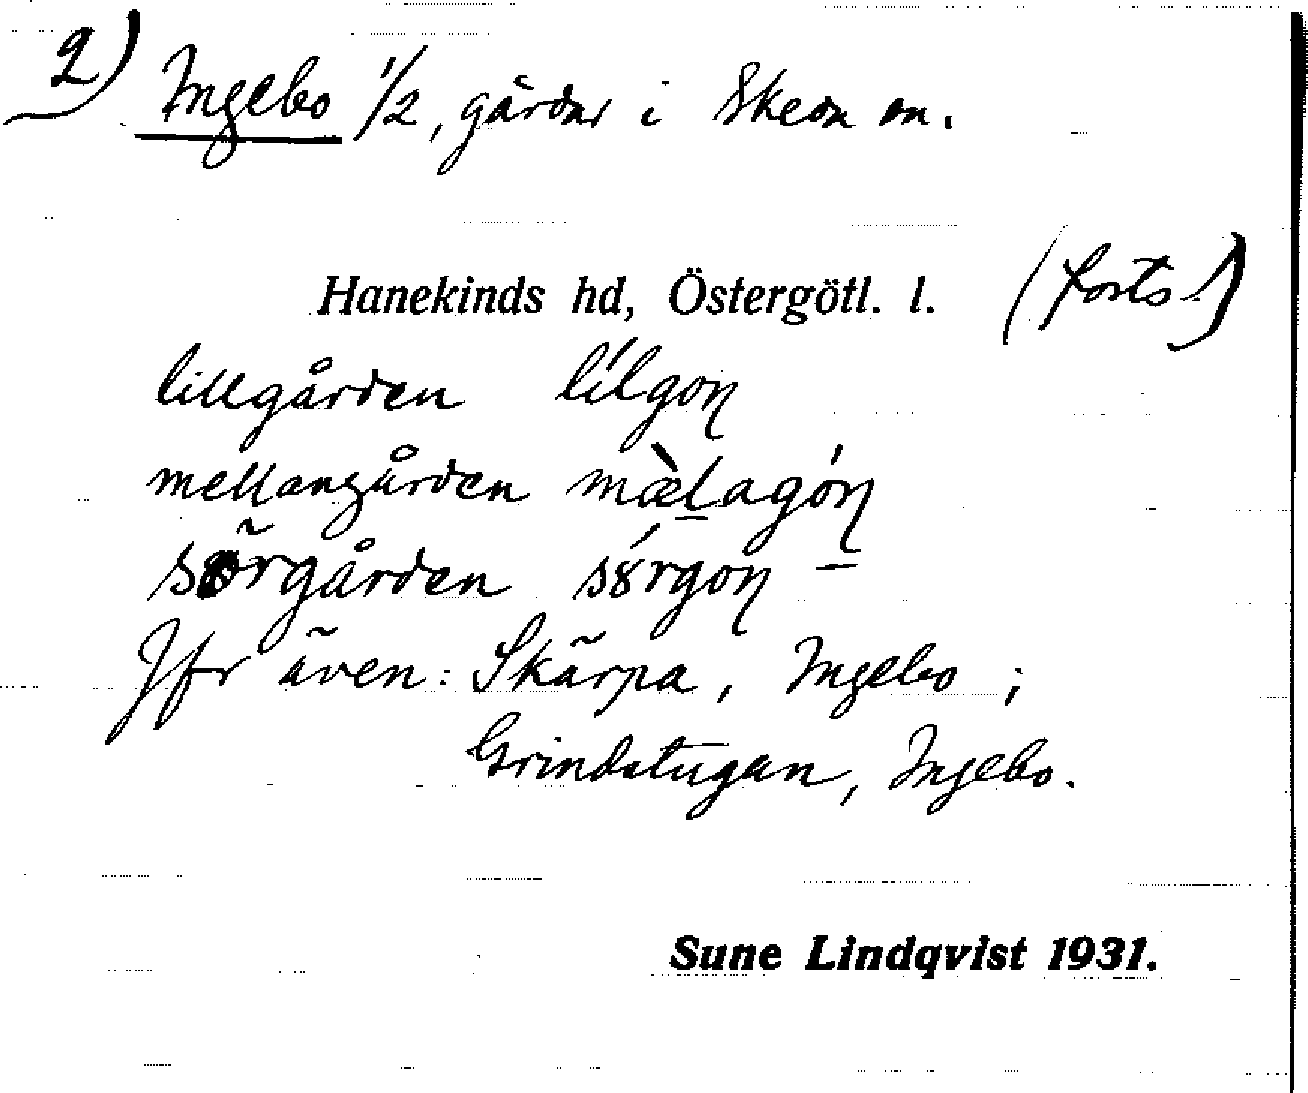 2) Ingebo 1/2, gårdar i Skeda sn.
Hanekinds hd, Östergötl. l. (forts.)
lillgården lílgoɳ
mellangården mæ̀lagóɳ
sörgården sýrgoɳ
Jfr även: Skärpa, Ingebo;
Grindstugan, Ingebo.
Sune Lindqvist 1931.